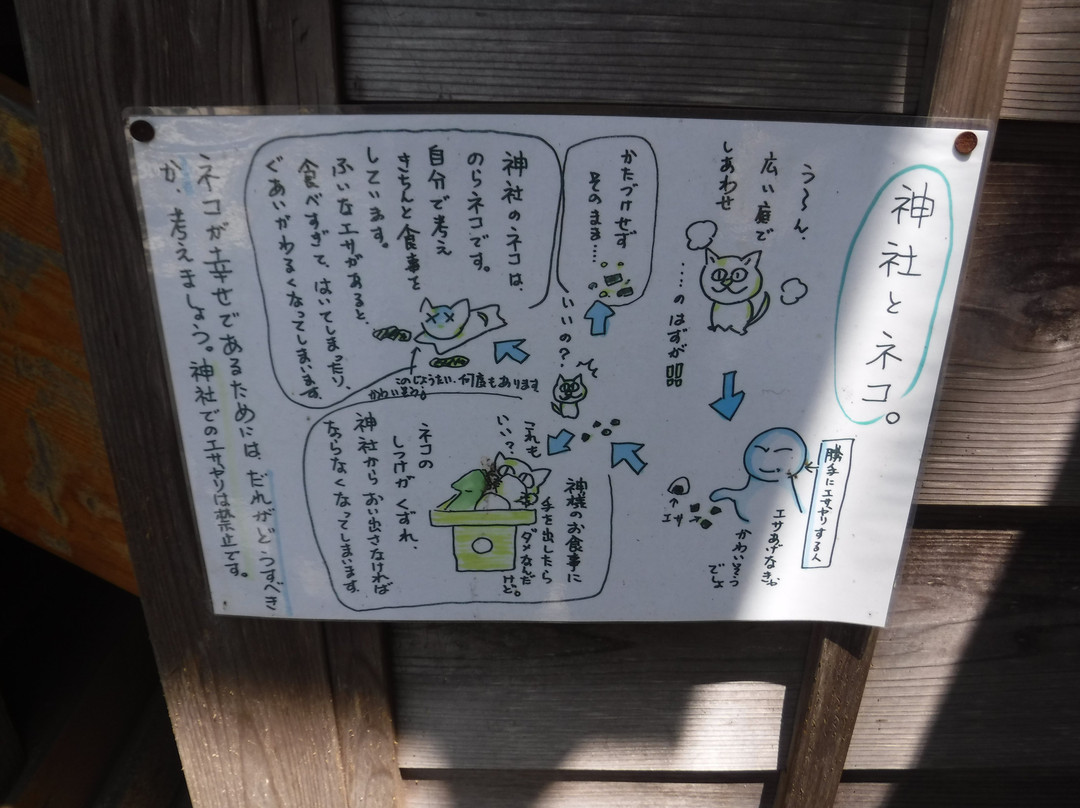 神社とネコ。
う〜ん、
広い庭で
しあわせ
……のはずが!!
勝手にエサやりする人
エサあげなきゃ
かわいそう
でしょ
エサ
かたづけせず
そのまま…‥
いいの？
神社のネコは、
のらネコです。
自分で考え
きちんと食事を
しています。
ふいなエサがあると、
食べすぎて、はいてしまったり、
ぐあいがわるくなってしまいます。
このじょうたい、何度もあります
かわいそう。
これも
いい？
神様のお食事に
手を出したら
ダメなんだ
けど。
ネコの
しつけがくずれ、
神社からおい出さなければ
ならなくなってしまいます。
ネコが幸せであるためには、だれがどうすべき
か、考えましょう。神社でのエサやりは禁止です。